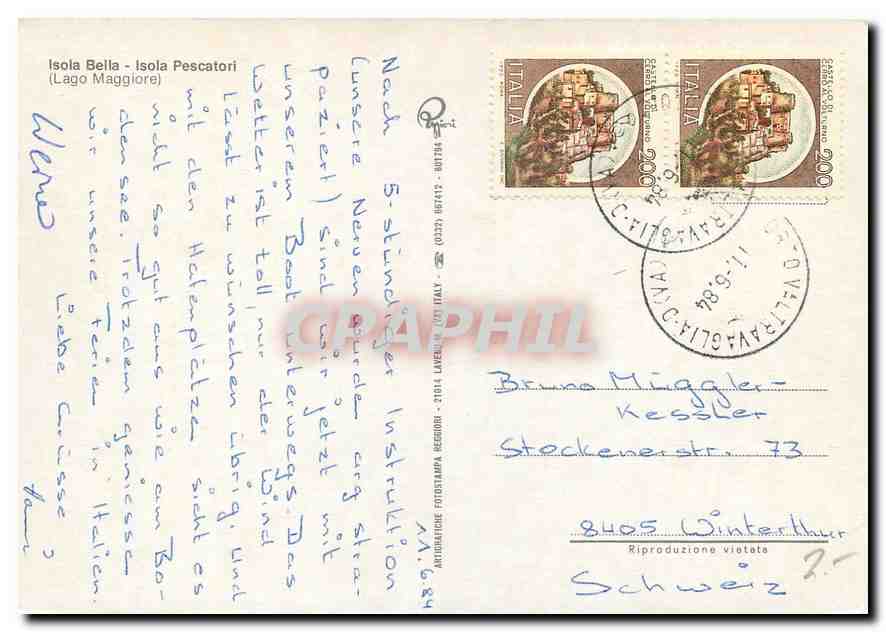 Isola Bella - Isola Pescatori
(Lago Maggiore)
11.6.84
Nach 5-stündiger Instruktion
(unsere Nerven wurden arg stra-
paziert) sind wir jetzt mit
unserem Boot unterwegs. Das
Wetter ist toll, nur der Wind
lässt zu wünschen übrig. Und
mit den Hafenplätzen sieht es
nicht so gut aus wie am Bo-
densee. Trotzdem geniessen
wir unsere Ferien in Italien.
Liebe Grüsse
ARTIGRAFICHE FOTOSTAMPA REGGIORI - 21014 LAVENO M. (VA) ITALY - ☎ (0332) 667412 - 601794
ITALIA
CASTELLO DI
CERRO AL VOLTURNO
200
ITALIA
CASTELLO DI
CERRO AL VOLTURNO
200
VALTRAVAGLIA-D(VA)
11.6.84
CPAPHIL
Bruno Müggler-
Kessler
Stockenerstr. 73
8405 Winterthur
Riproduzione vietata
Schweiz
2.-